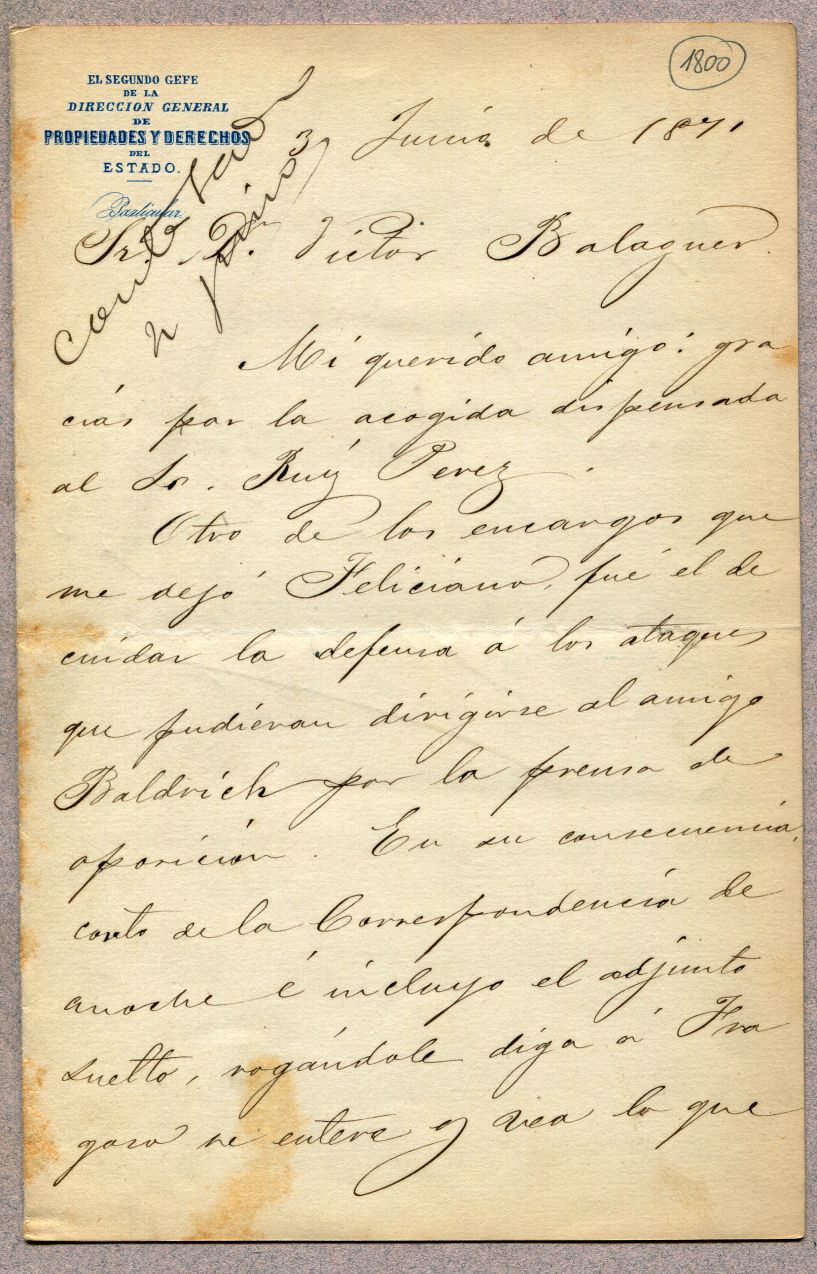 1800
EL SEGUNDO GEFE
DE LA
DIRECCION GENERAL
DE
PROPIEDADES Y DERECHOS
DEL
ESTADO.
Particular.
3 Junio de 1871
contestado
Sr. Dn. Victor Balaguer.
Mi querido amigo: gra
cias por la acogida dispensada
al Sr. Ruy Perez.
Otro de los encargos que
me dejó Feliciano, fué el de
cuidar la defensa á los ataques
que pudieran dirigirse al amigo
Baldrich por la prensa de
oposición. En su consecuencia,
corto de la Correspondencia de
anoche é incluyo el adjunto
suelto, rogándole diga á Fra
goso se entere y vea lo que